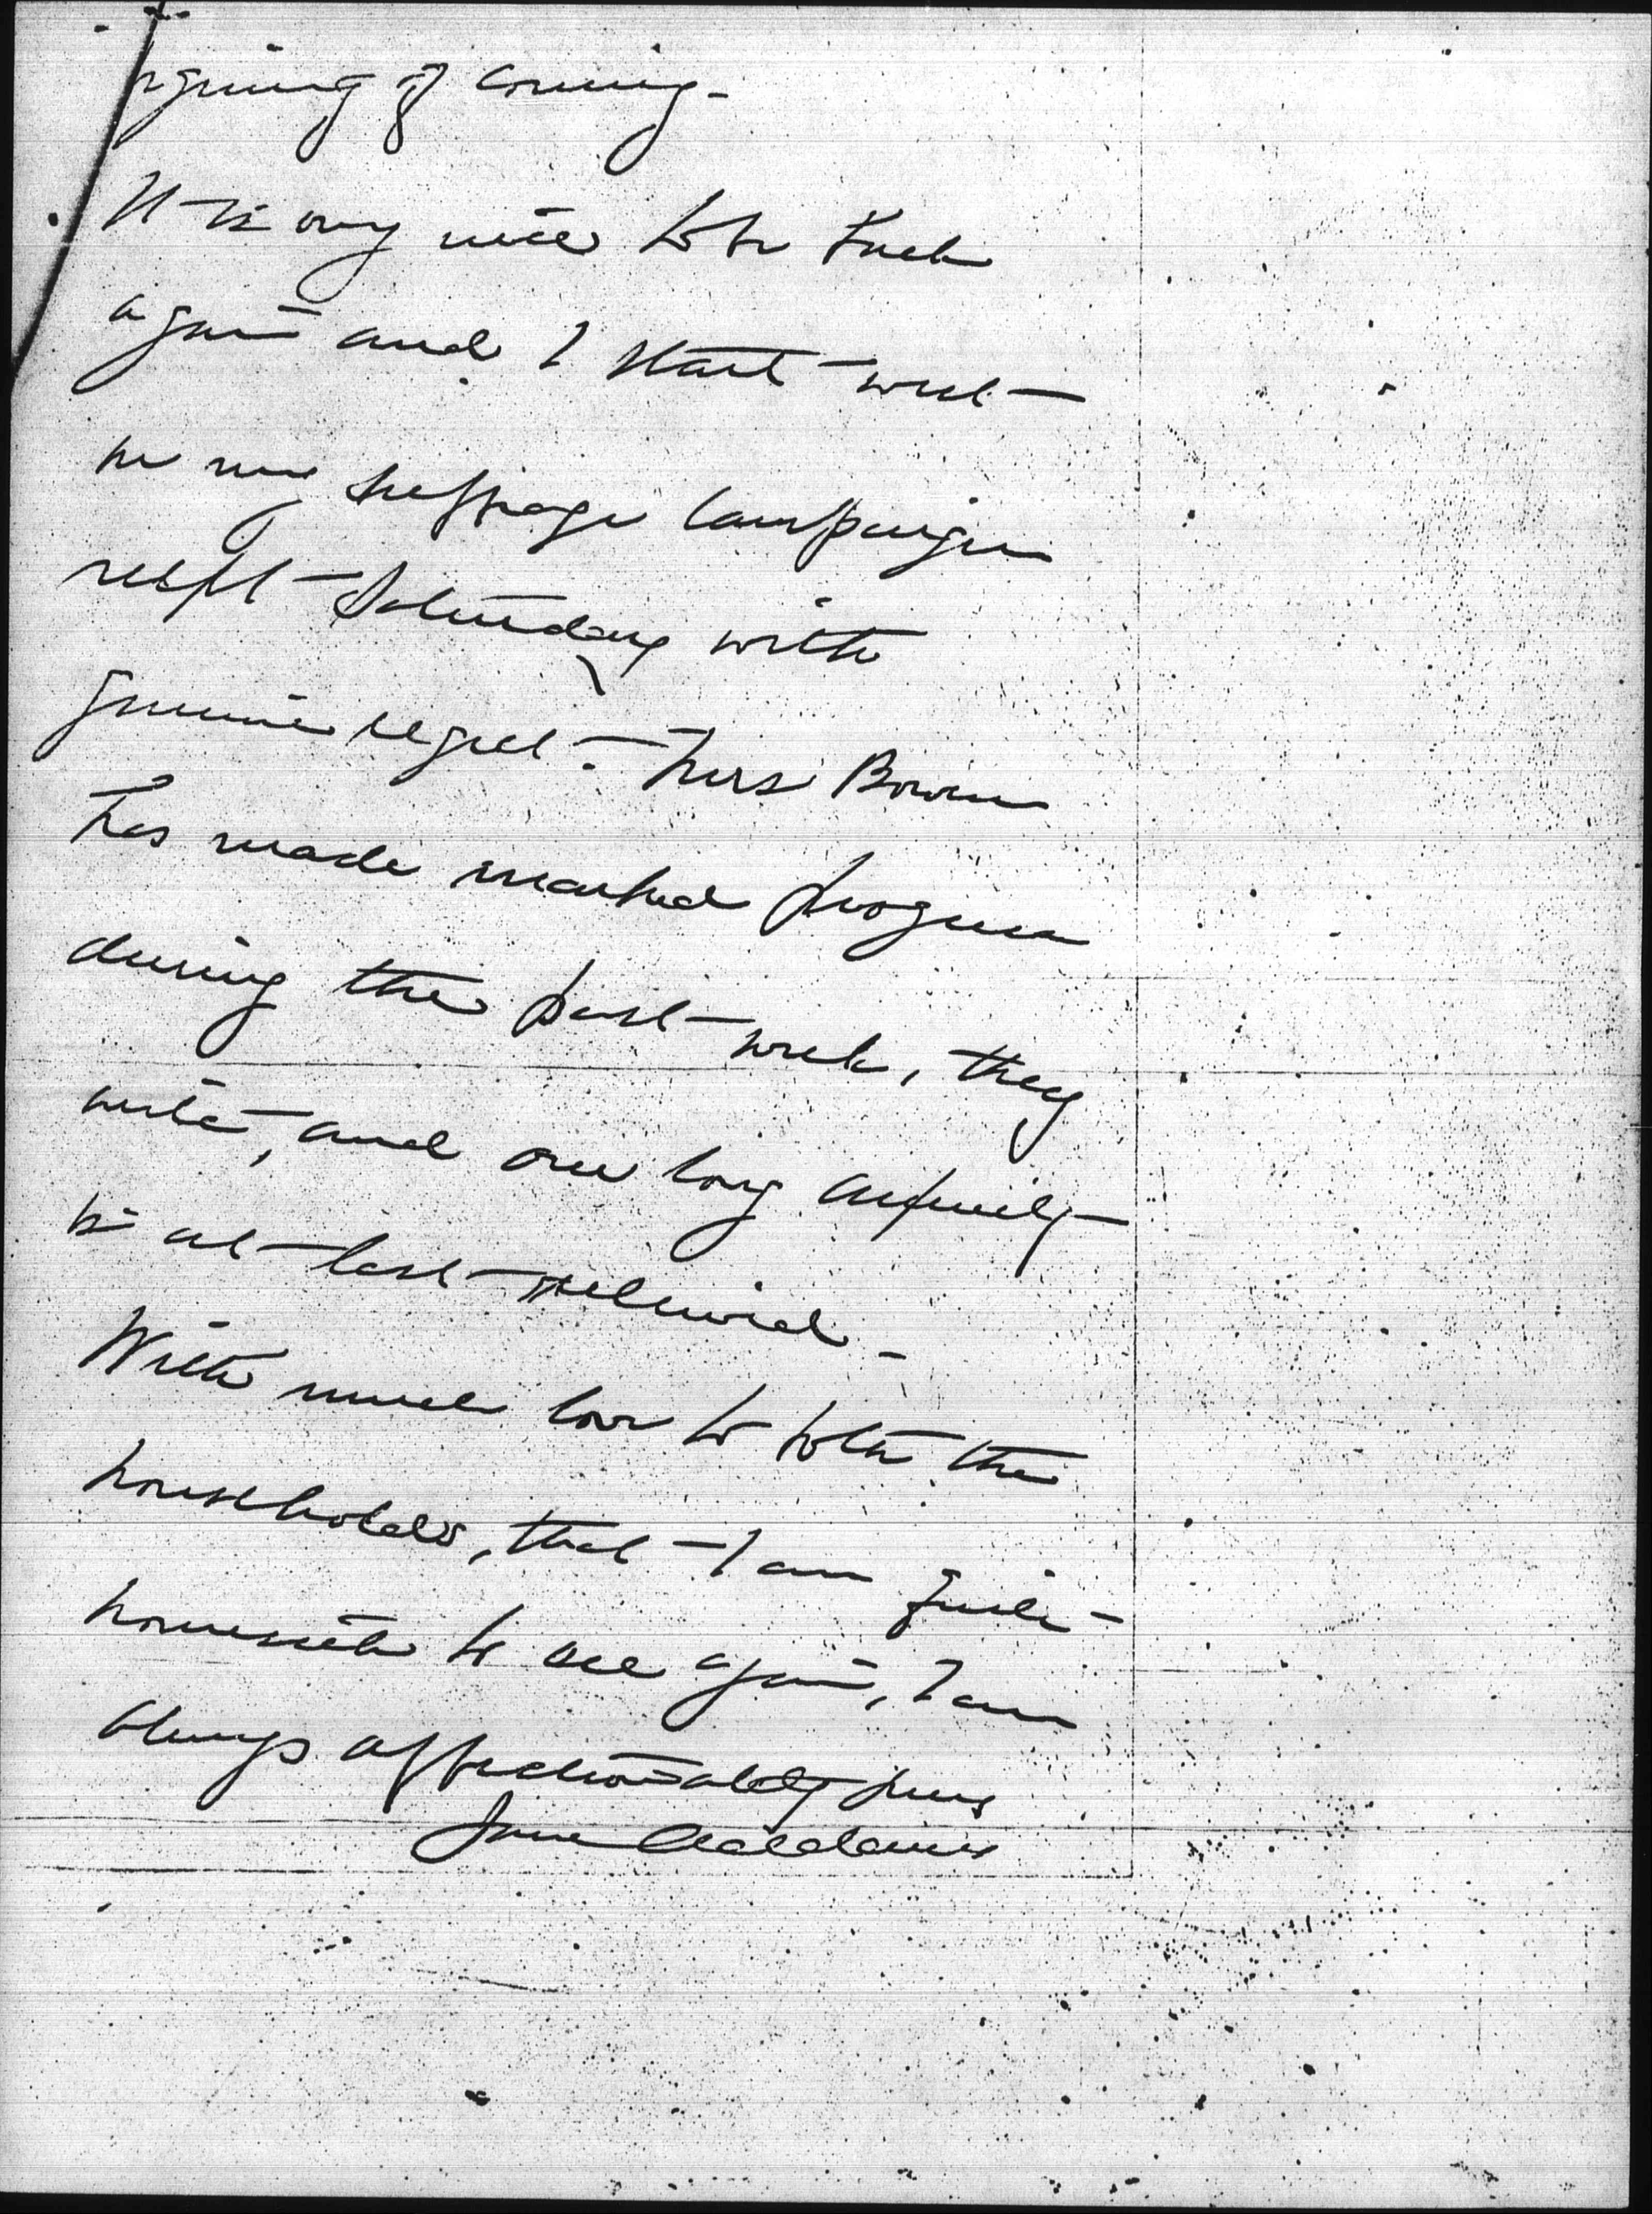 signing of coming -
It is very nice to be back
again and I start west
on my suffrage campaign
next Saturday with
genuine regret. Mrs Bowen
has made marked progress
during the past week, they
write, and our long anxiety
is at last relieved -
With much love to both the
households, that I am quite
homesick to see again, I am
always affectionately yours
Jane Addams